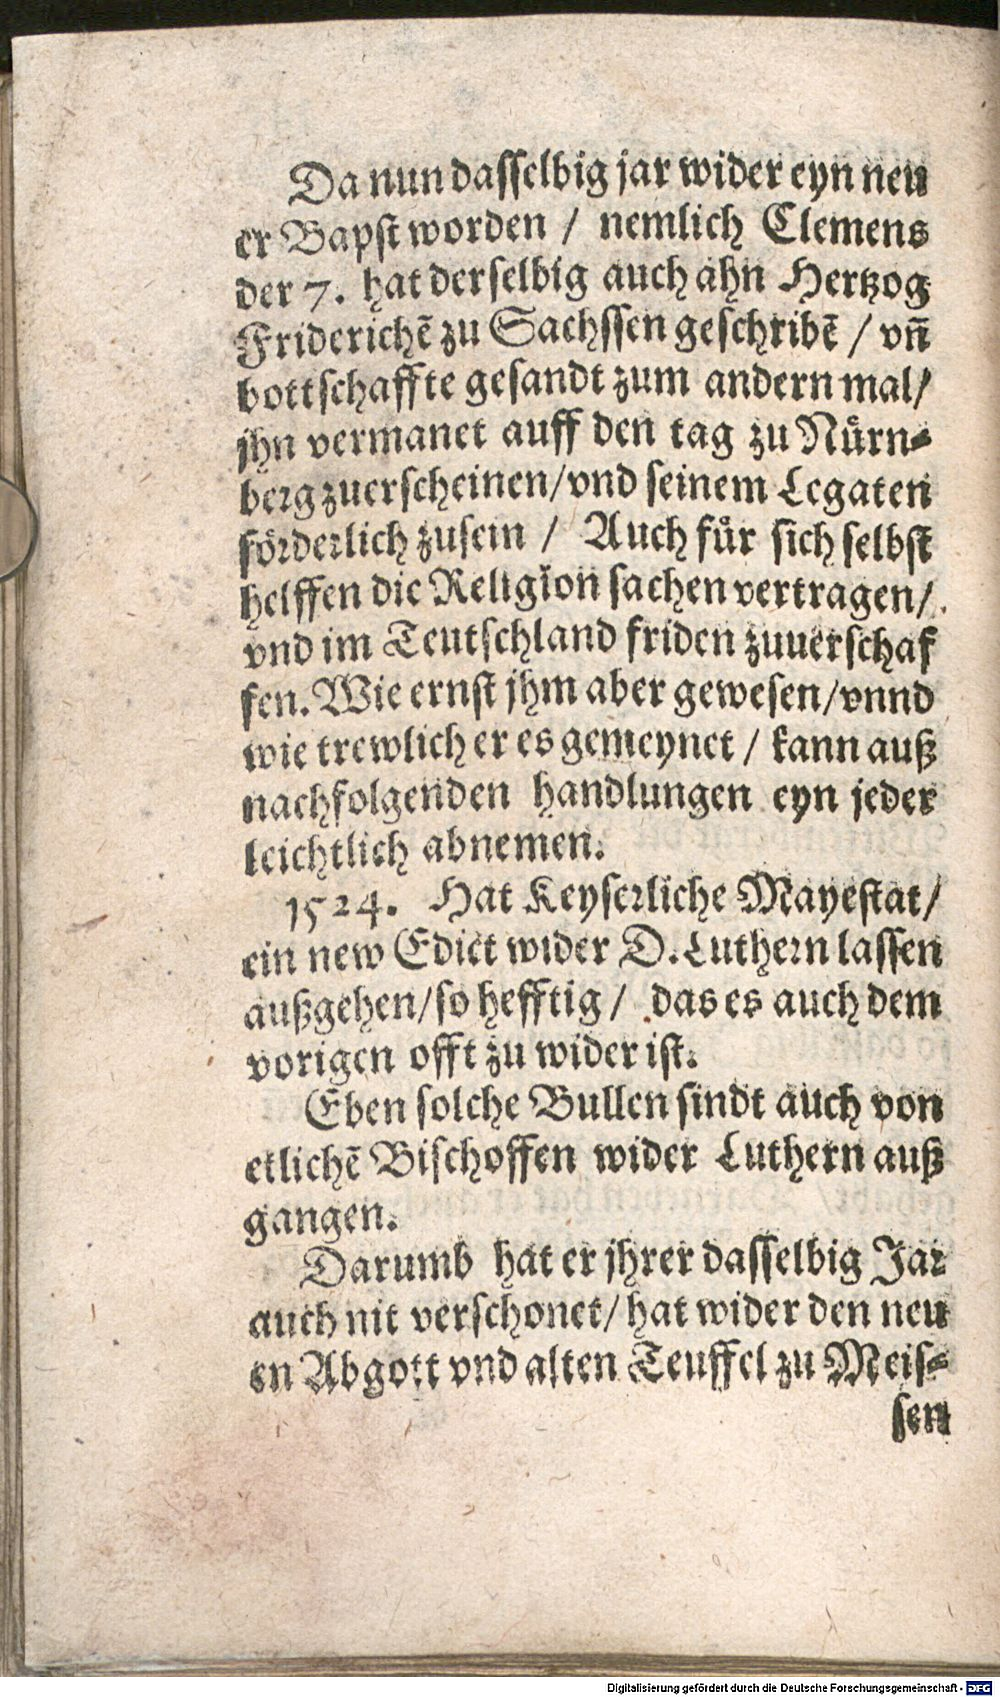 Da nun dasselbig jar wider eyn neu
er Bapst worden / nemlich Clemens
der 7. hat derselbig auch ahn Hertzog
Friderichē zu Sachssen geschribē / vn̄
bottschaffte gesandt zum andern mal/
jhn vermanet auff den tag zu Nuͤrn⸗
berg zuerscheinen/vnd seinem Legaten
foͤrderlich zusein / Auch fuͤr sich selbst
helffen die Religion sachen vertragen/
vnd im Teutschland friden zuuerschaf
fen. Wie ernst jhm aber gewesen/vnnd
wie trewlich er es gemeynet / kann auß
nachfolgenden handlungen eyn jeder
leichtlich abnemen.
1524. Hat Keyserliche Mayestat/
ein new Edict wider D. Luthern lassen
außgehen/so hefftig / das es auch dem
vorigen offt zu wider ist.
Eben solche Bullen sindt auch von
etlichē Bischoffen wider Luthern auß
gangen.
Darumb hat er jhrer dasselbig Jar
auch nit verschonet/ hat wider den neu
en Abgott vnd alten Teuffel zu Meis⸗
sen
Digitalisierung gefördert durch die Deutsche Forschungsgemeinschaft - DFG